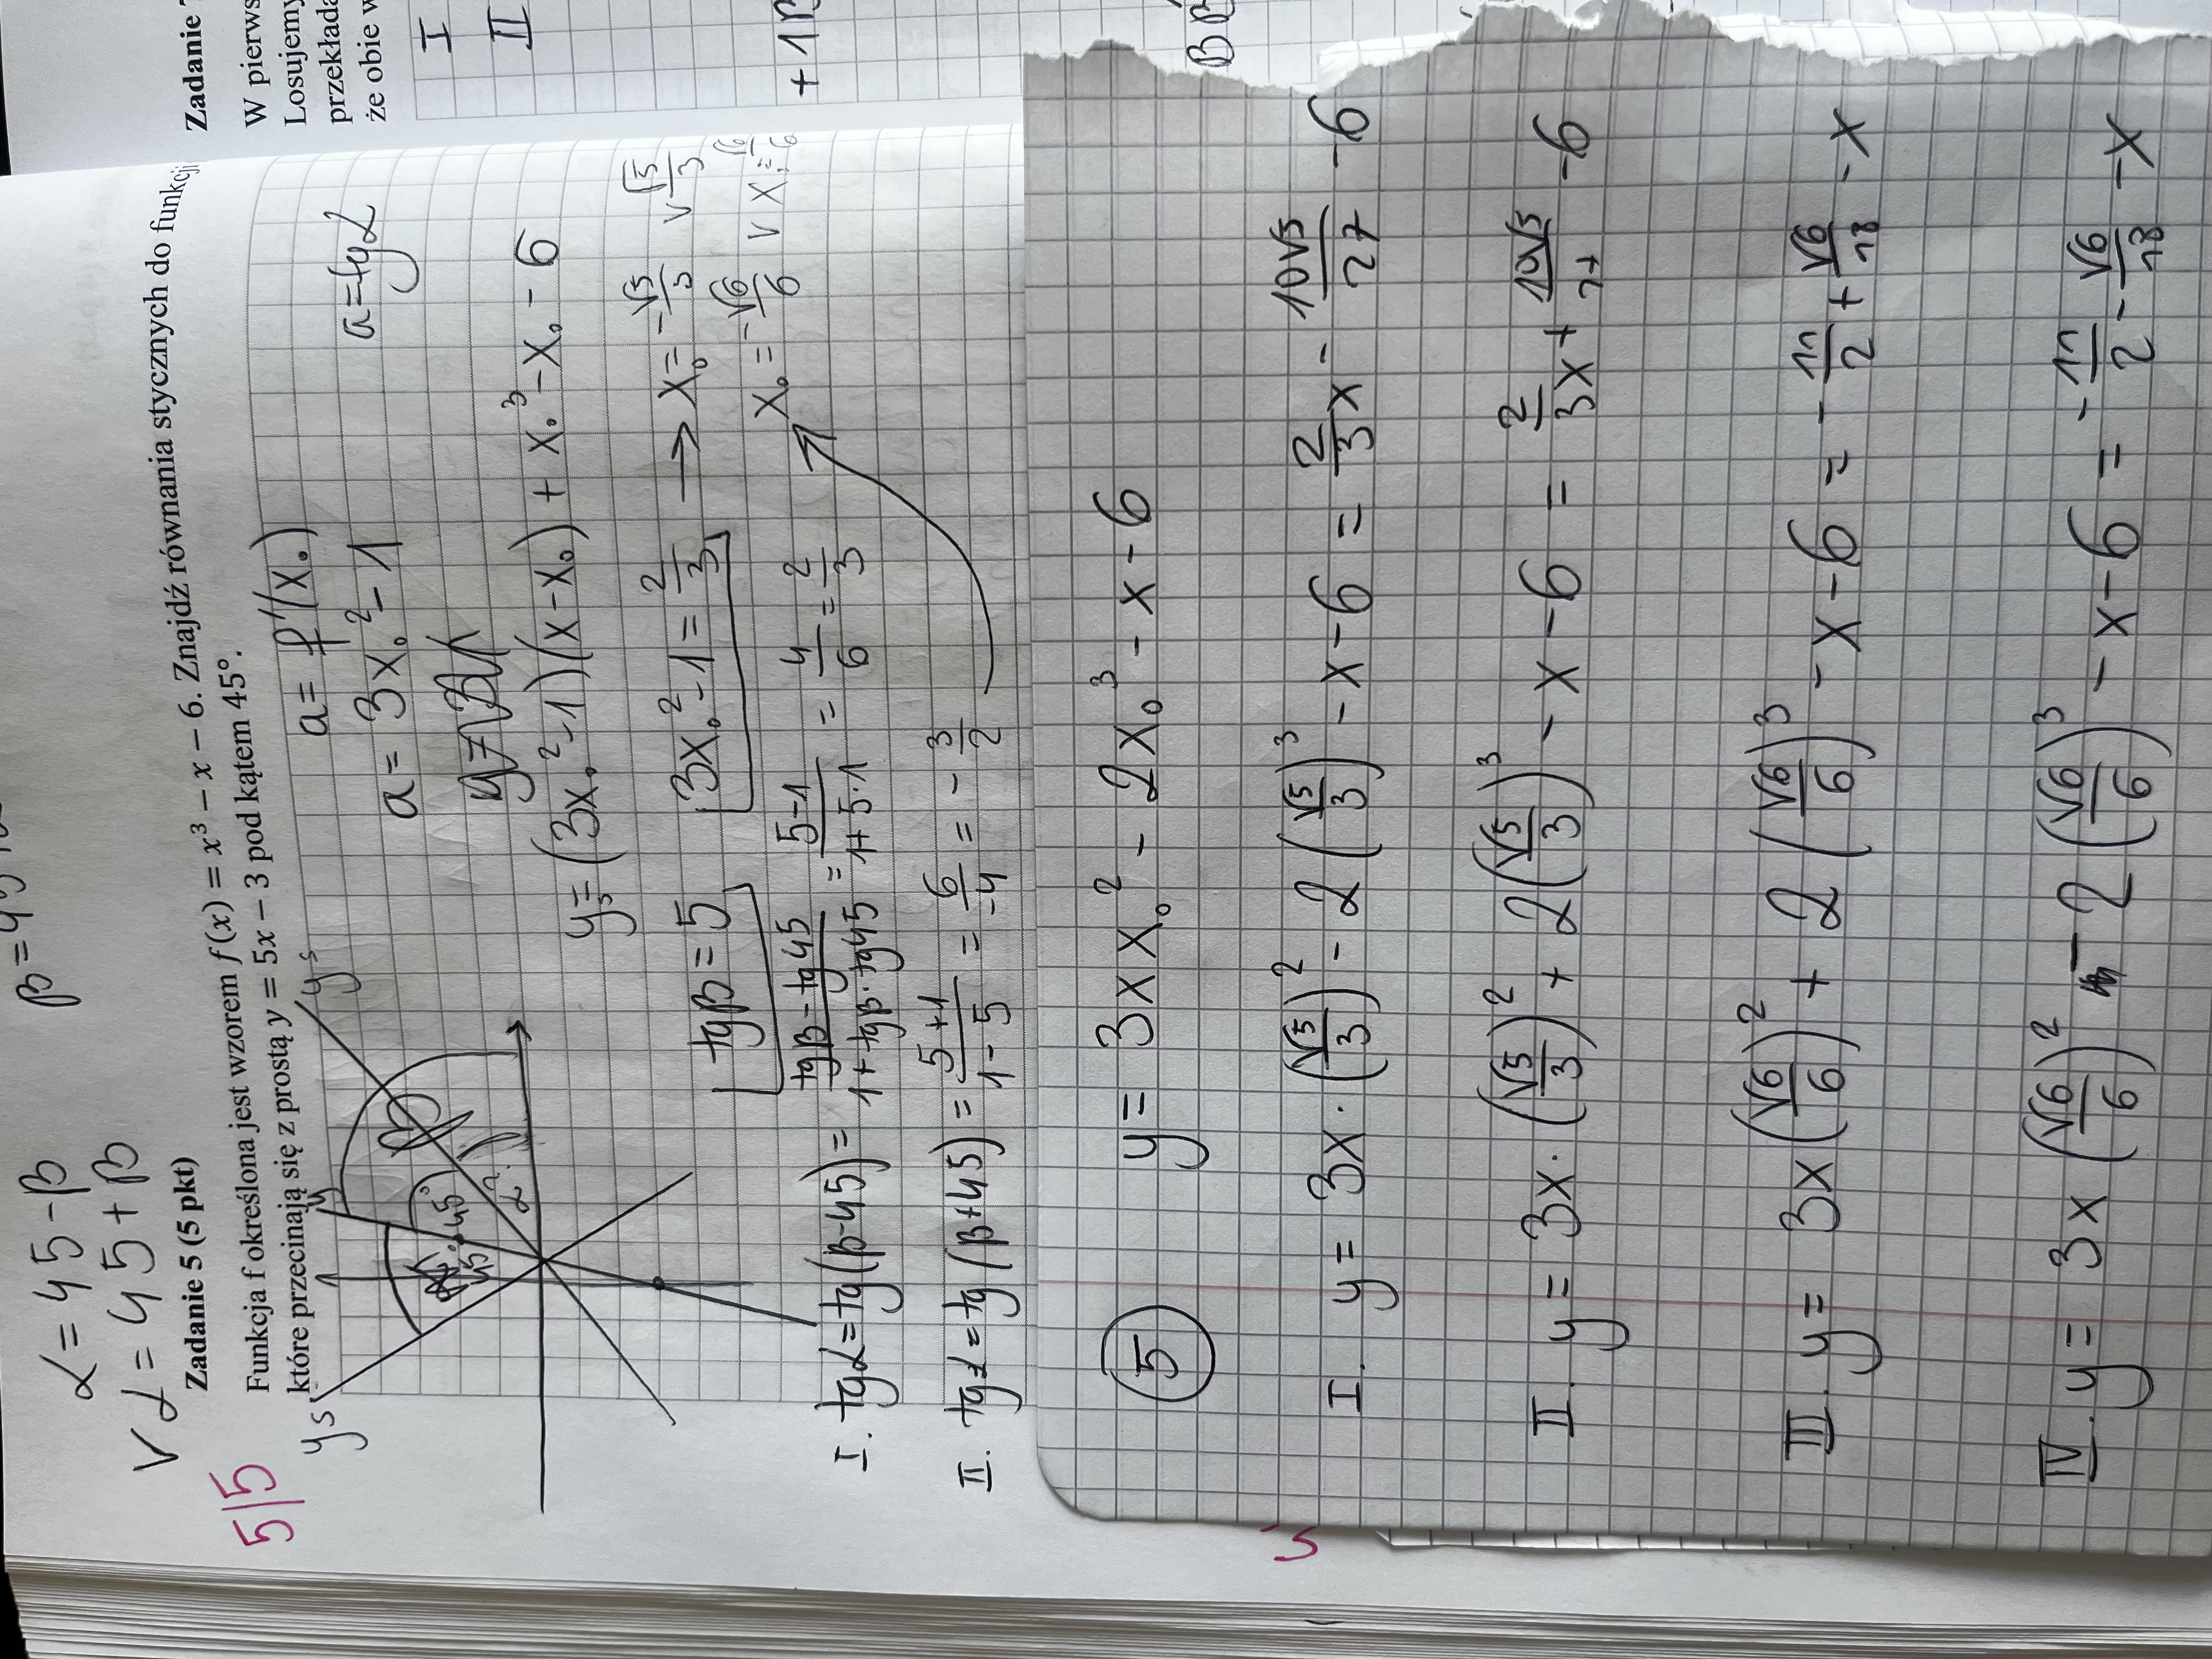 β = 45
α = 45 - β
V α = 45 + β
Zadanie 5 (5 pkt)
5|5
Funkcja f określona jest wzorem f(x) = x³ − x − 6. Znajdź równania stycznych do funkcji
które przecinają się z prostą y = 5x − 3 pod kątem 45°.
ys
y
ys
45°
45
α?
a = f'(x₀)
a = tgα
a = 3x₀² - 1
yₛ = (3x₀² - 1)(x - x₀) + x₀³ - x₀ - 6
tgβ = 5
3x₀² - 1 = 2/3 → x₀ = -√5/3 V √5/3
x₀ = -√6/6 V x = √6/6
I. tgα = tg(β-45) = (tgβ - tg45)/(1 + tgβ·tg45) = (5-1)/(1+5·1) = 4/6 = 2/3
II. tgα = tg(β+45) = (5+1)/(1-5) = 6/-4 = -3/2
⑤ y = 3xx₀² - 2x₀³ - x - 6
I. y = 3x·(√5/3)² - 2(√5/3)³ - x - 6 = 2/3x - 10√5/27 - 6
II. y = 3x·(√5/3)² + 2(√5/3)³ - x - 6 = 2/3x + 10√5/27 - 6
III. y = 3x(√6/6)² + 2(√6/6)³ - x - 6 = - 11/2 + √6/18 - x
IV. y = 3x(√6/6)² - 2(√6/6)³ - x - 6 = - 11/2 - √6/18 - x
Zadanie
W pierws
Losujemy
przekłada
że obie w
I
II